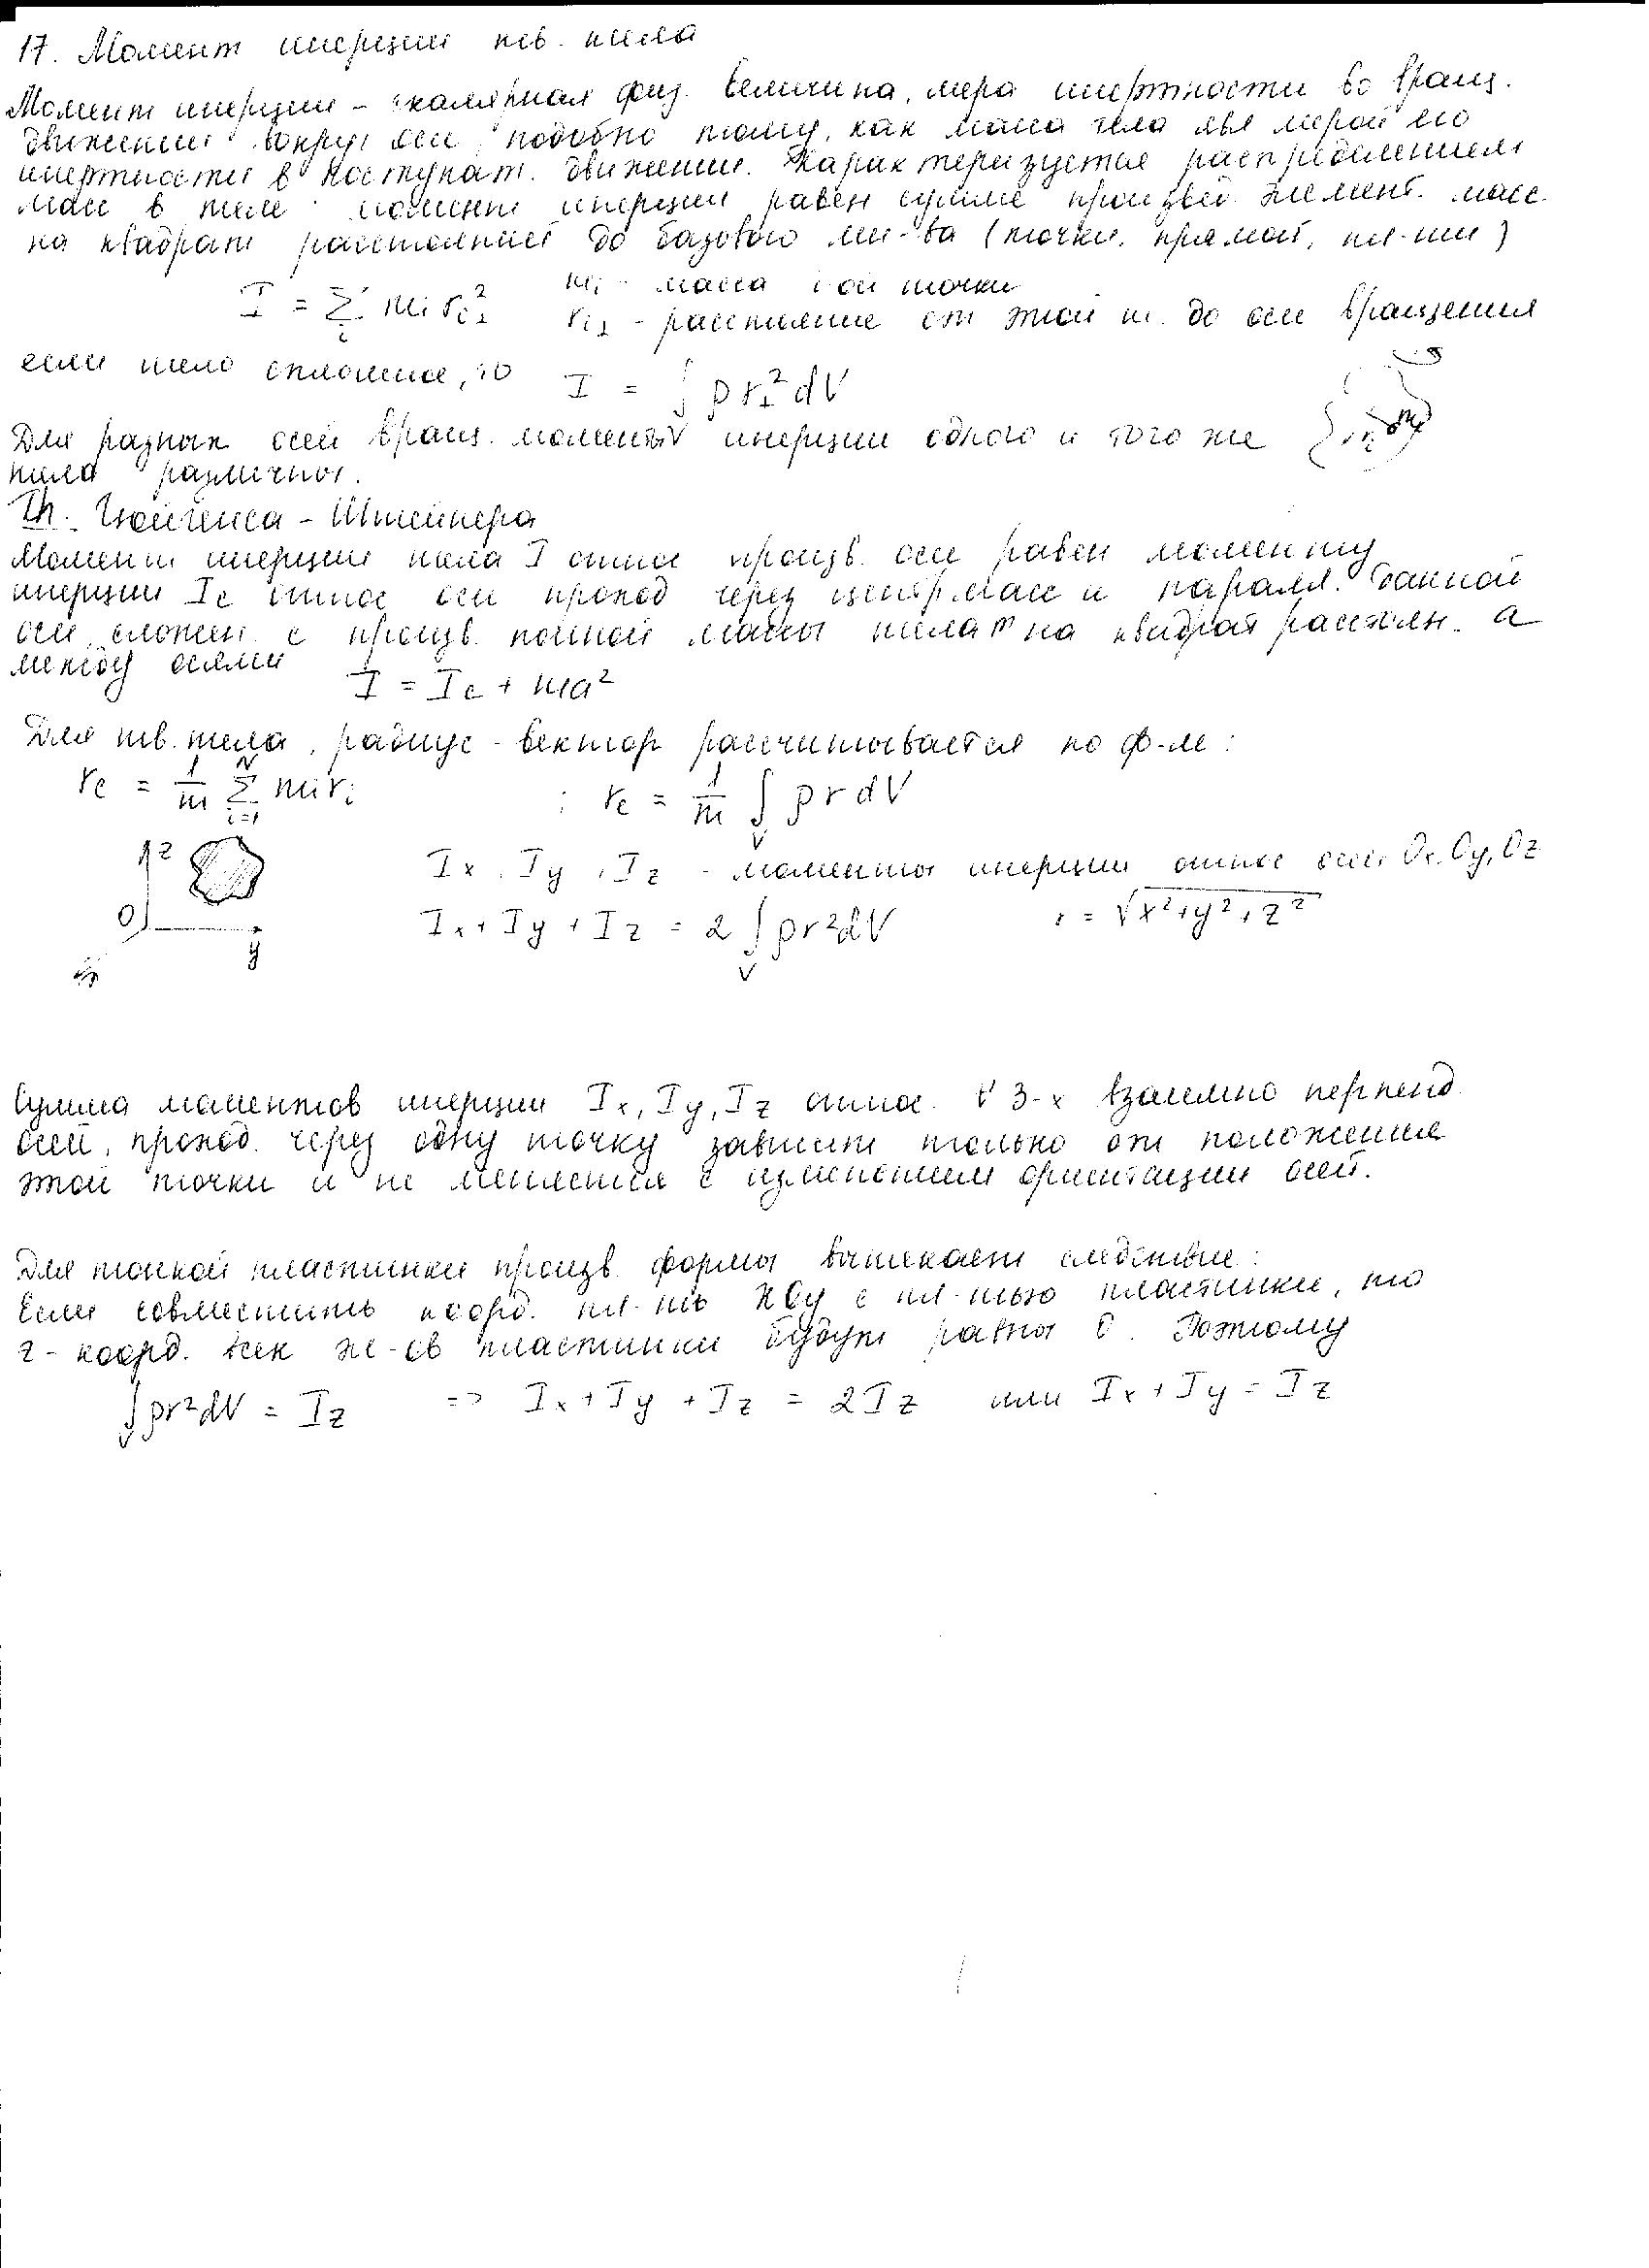 17. Момент инерции тв. тела
Момент инерции - скалярная физ. величина, мера инертности во вращ.
движении вокруг оси, подобно тому, как масса тела явл мерой его
инертности в поступат. движении. Характеризуется распределением
масс в теле: момент инерции равен сумме произвед. элемент. масс.
на квадрат расстояний до базового мн-ва (точки, прямой, пл-ти)
I = Σ_i m_i r_{i⊥}^2 m_i - масса i-ой точки
r_{i⊥} - расстояние от этой т. до оси вращения
если тело сплошное, то I = ∫ ρ r_⊥^2 dV
Для разных осей вращ. моменты инерции одного и того же
тела различны.
Th. Гюйгенса - Штейнера
Момент инерции тела I относ произв. оси равен моменту
инерции I_c относ оси проход через центр масс и паралл. данной
оси, сложен. с произв. полной массы тела m на квадрат расстоян. a
между осями
I = I_c + ma²
Для тв. тела, радиус-вектор рассчитывается по ф-ле:
r_c = 1/m Σ_{i=1}^N m_i r_i ; r_c = 1/m ∫_V ρ r dV
z
O
y
I_x, I_y, I_z - моменты инерции относ осей Ox, Oy, Oz
I_x + I_y + I_z = 2 ∫_V ρr²dV r = √x²+y²+z²
Сумма моментов инерции I_x, I_y, I_z относ. 3-х взаимно перпенд.
осей, проход. через одну точку зависит только от положения
этой точки и не меняется с изменением ориентации осей.
Для тонкой пластинки произв. формы вытекает следствие:
Если совместить коорд. пл-ть XOy с пл-тью пластинки, то
z-коорд. всех эл-ов пластинки будут равны 0. Поэтому
∫_V ρr²dV = I_z => I_x + I_y + I_z = 2I_z или I_x + I_y = I_z